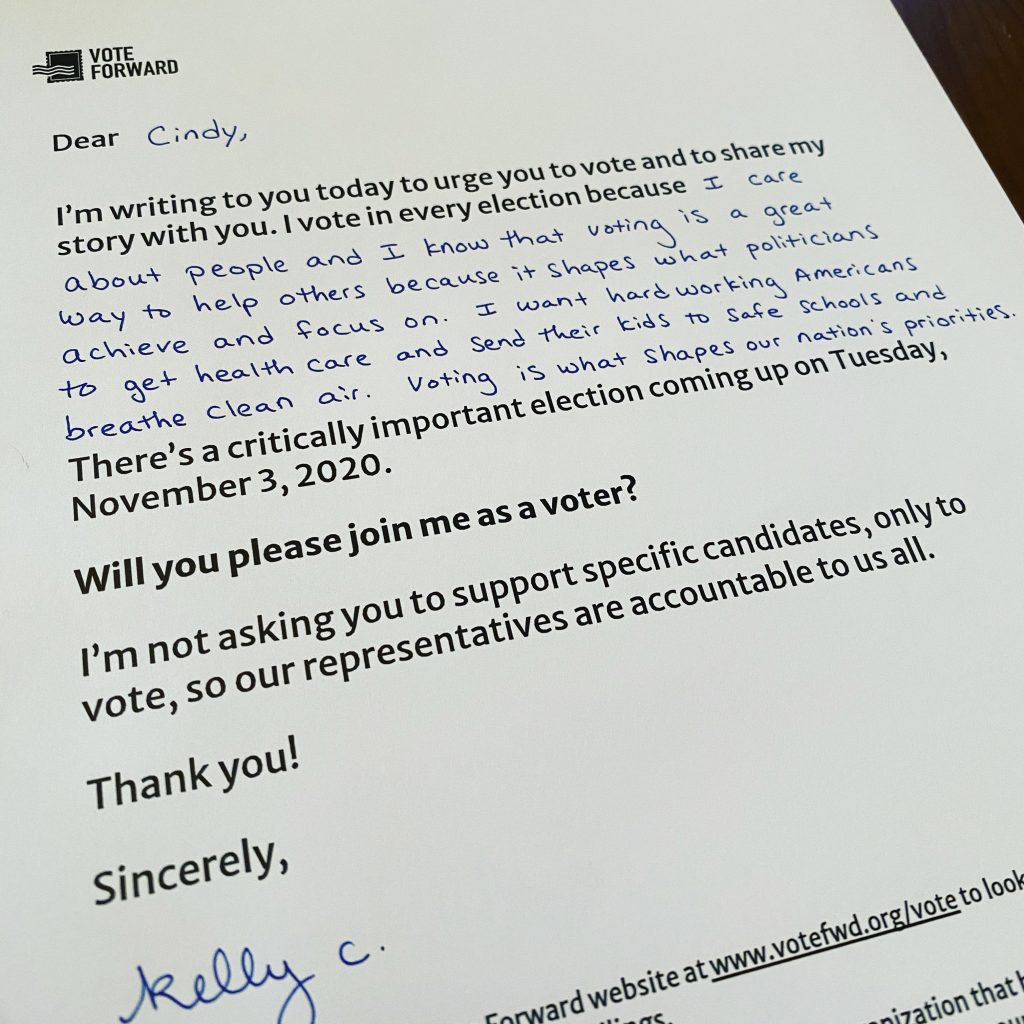 VOTE
FORWARD
Dear Cindy,
I'm writing to you today to urge you to vote and to share my
story with you. I vote in every election because I care
about people and I know that voting is a great
way to help others because it shapes what politicians
achieve and focus on. I want hard working Americans
to get health care and send their kids to safe schools and
breathe clean air. Voting is what shapes our nation's priorities.
There's a critically important election coming up on Tuesday,
November 3, 2020.
Will you please join me as a voter?
I'm not asking you to support specific candidates, only to
vote, so our representatives are accountable to us all.
Thank you!
Sincerely,
Kelly C.
Forward website at www.votefwd.org/vote to look
that